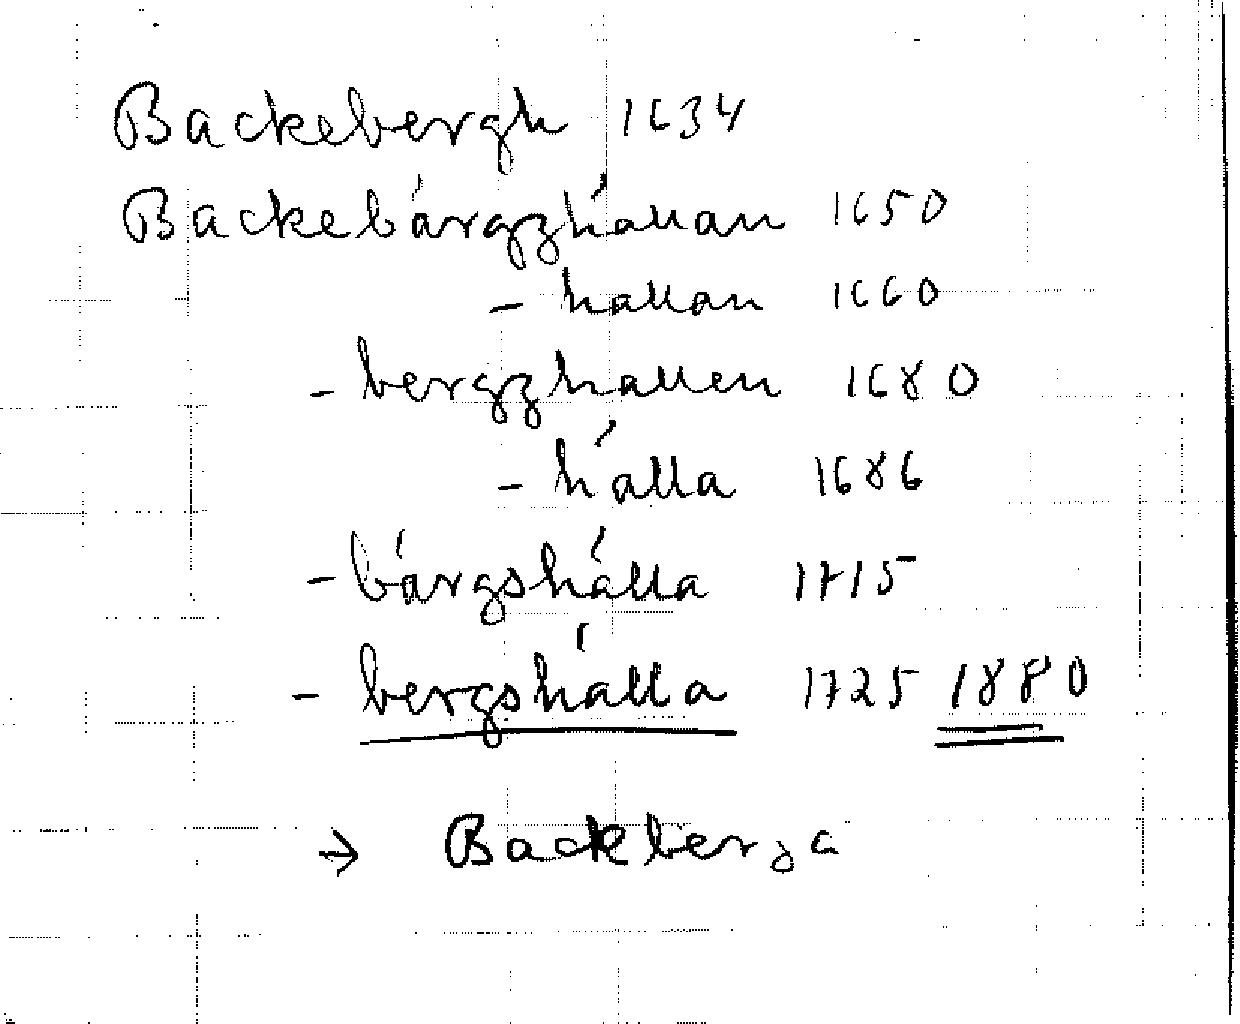 Backebergh 1634
Backebárgzhállan 1650
- hallan 1660
- bergzhallen 1680
- hálla 1686
- bárgshálla 1715
- bergshálla 1725 1880
→ Backberga